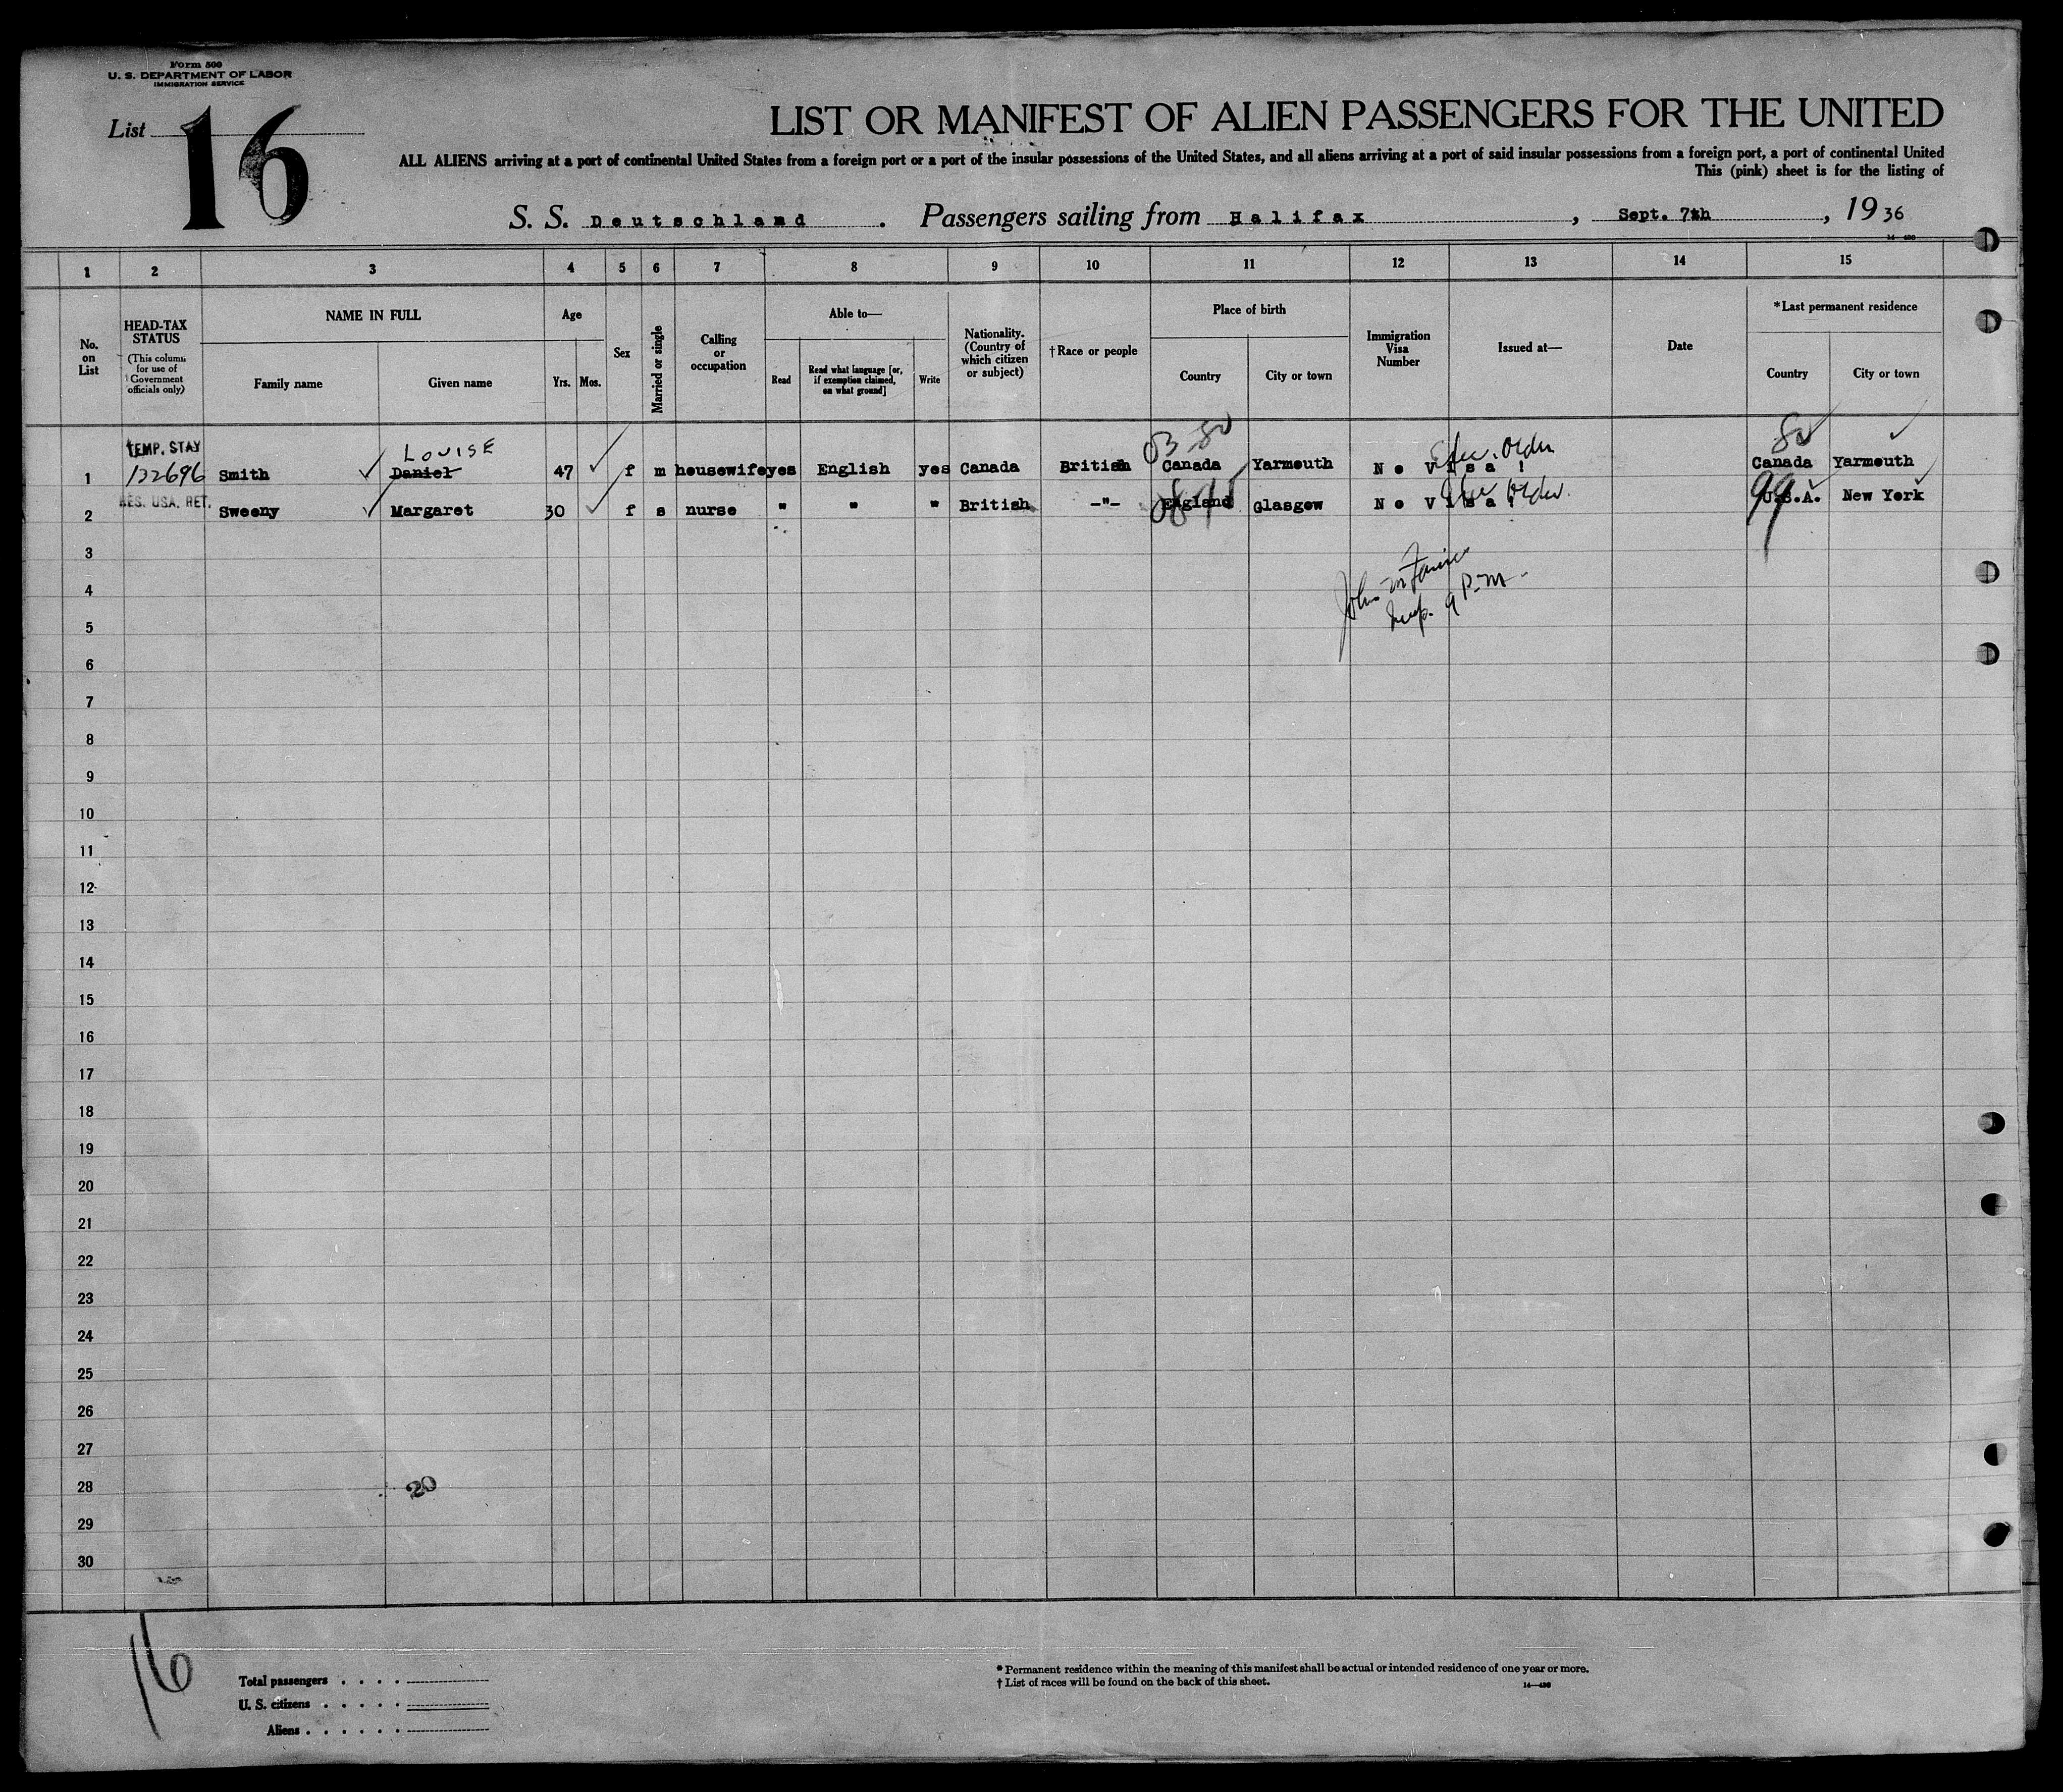 Form 500
U. S. DEPARTMENT OF LABOR
IMMIGRATION SERVICE
List 16
LIST OR MANIFEST OF ALIEN PASSENGERS FOR THE UNITED
ALL ALIENS arriving at a port of continental United States from a foreign port or a port of the insular possessions of the United States, and all aliens arriving at a port of said insular possessions from a foreign port, a port of continental United
This (pink) sheet is for the listing of
S. S. Deutschland. Passengers sailing from Halifax, Sept. 7th, 1936
1 2 3 4 5 6 7 8 9 10 11 12 13 14 15
No. on List
HEAD-TAX STATUS
(This column for use of Government officials only)
NAME IN FULL
Family name Given name
Age
Yrs. Mos.
Sex
Married or single
Calling or occupation
Able to—
Read
Read what language [or, if exemption claimed, on what ground]
Write
Nationality. (Country of which citizen or subject)
†Race or people
Place of birth
Country City or town
Immigration Visa Number
Issued at—
Date
*Last permanent residence
Country City or town
TEMP. STAY LOUISE 80 Order 80
1 132696 Smith Daniel 47 f m housewife yes English yes Canada British Canada Yarmouth No Visa! Canada Yarmouth
RES. USA. RET. Order 99
2 Sweeny Margaret 30 f s nurse " " " British -"- England Glasgow No Visa! U.S.A. New York
3
4 John
5 Insp. 9 P.M.
6
7
8
9
10
11
12
13
14
15
16
17
18
19
20
21
22
23
24
25
26
27
28 20
29
30
16
Total passengers
U. S. citizens
Aliens
* Permanent residence within the meaning of this manifest shall be actual or intended residence of one year or more.
† List of races will be found on the back of this sheet.
14—430